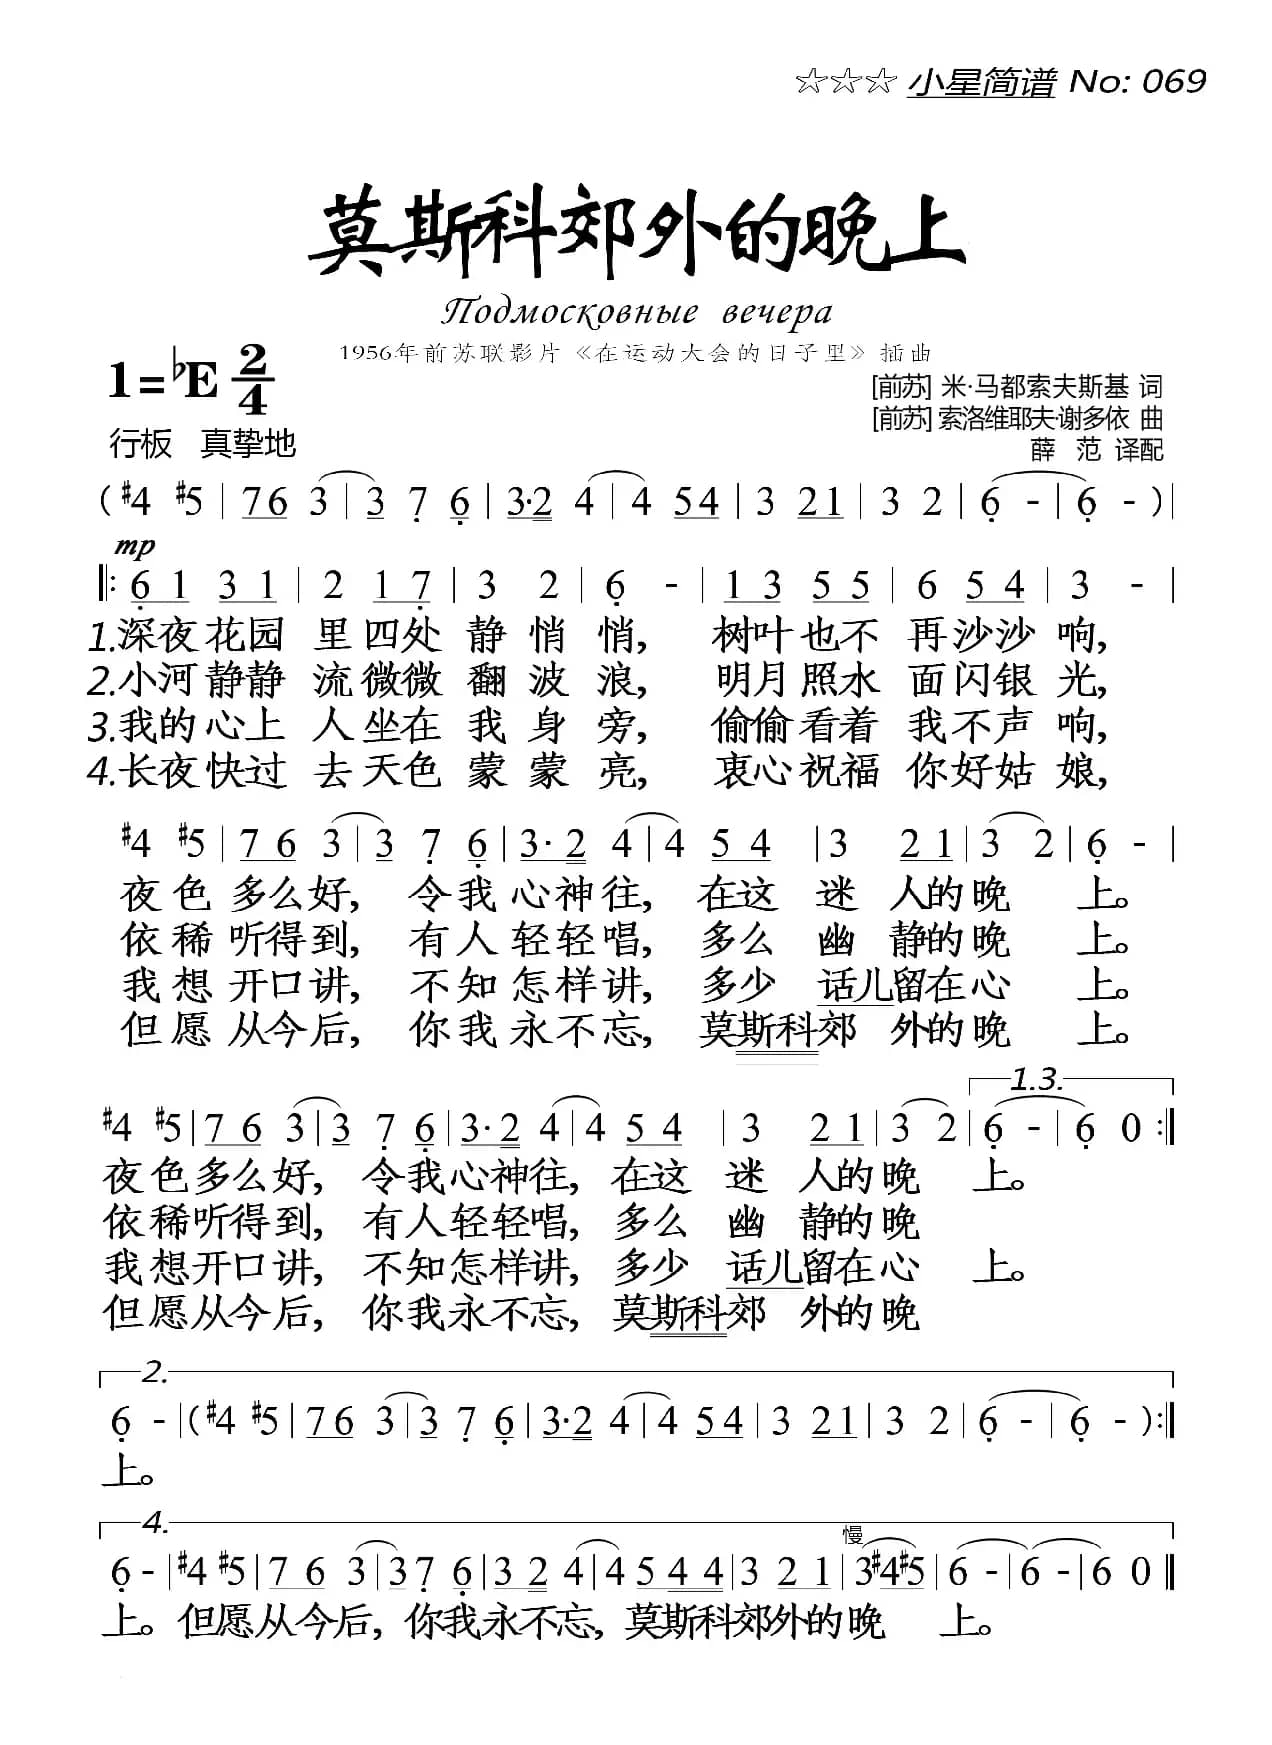 ☆☆☆ 小星简谱 No: 069
莫斯科郊外的晚上
Подмосковные вечера
1956年前苏联影片《在运动大会的日子里》插曲
1=♭E 2/4
[前苏] 米·马都索夫斯基 词
[前苏] 索洛维耶夫·谢多依 曲
行板 真挚地
薛 范 译配
( #4 #5 | 76 3 | 3 7 6 | 3·2 4 | 4 54 | 3 21 | 3 2 | 6 - | 6 - ) |
mp
‖: 6 1 3 1 | 2 1 7 | 3 2 | 6 - | 1 3 5 5 | 6 5 4 | 3 - |
1.深夜花园 里四处 静 悄 悄, 树叶也不 再沙沙 响,
2.小河静静 流微微 翻 波 浪, 明月照水 面闪银 光,
3.我的心上 人坐在 我 身 旁, 偷偷看着 我不声 响,
4.长夜快过 去天色 蒙 蒙 亮, 衷心祝福 你好姑 娘,
#4 #5 | 7 6 3 | 3 7 6 | 3· 2 4 | 4 5 4 | 3 2 1 | 3 2 | 6 - |
夜色 多么好, 令我 心神往, 在这 迷 人的晚 上。
依稀 听得到, 有人 轻轻唱, 多么 幽 静的晚 上。
我想 开口讲, 不知 怎样讲, 多少 话儿留在心 上。
但愿 从今后, 你我 永不忘, 莫斯科郊 外的晚 上。
1.3.
#4 #5 | 7 6 3 | 3 7 6 | 3· 2 4 | 4 5 4 | 3 2 1 | 3 2 | 6 - | 6 0 :‖
夜色多么好, 令我心神往, 在这 迷 人的晚 上。
依稀听得到, 有人轻轻唱, 多么 幽 静的晚
我想开口讲, 不知怎样讲, 多少 话儿留在心 上。
但愿从今后, 你我永不忘, 莫斯科郊 外的晚
2.
6 - | ( #4 #5 | 76 3 | 3 7 6 | 3·2 4 | 4 54 | 3 21 | 3 2 | 6 - | 6 - ) :‖
上。
4.
慢
6 - | #4 #5 | 7 6 3 | 3 7 6 | 3 2 4 | 4 5 4 4 | 3 2 1 | 3 #4 #5 | 6 - | 6 - | 6 0 ‖
上。但愿从今后, 你我永不忘, 莫斯科郊外的晚 上。